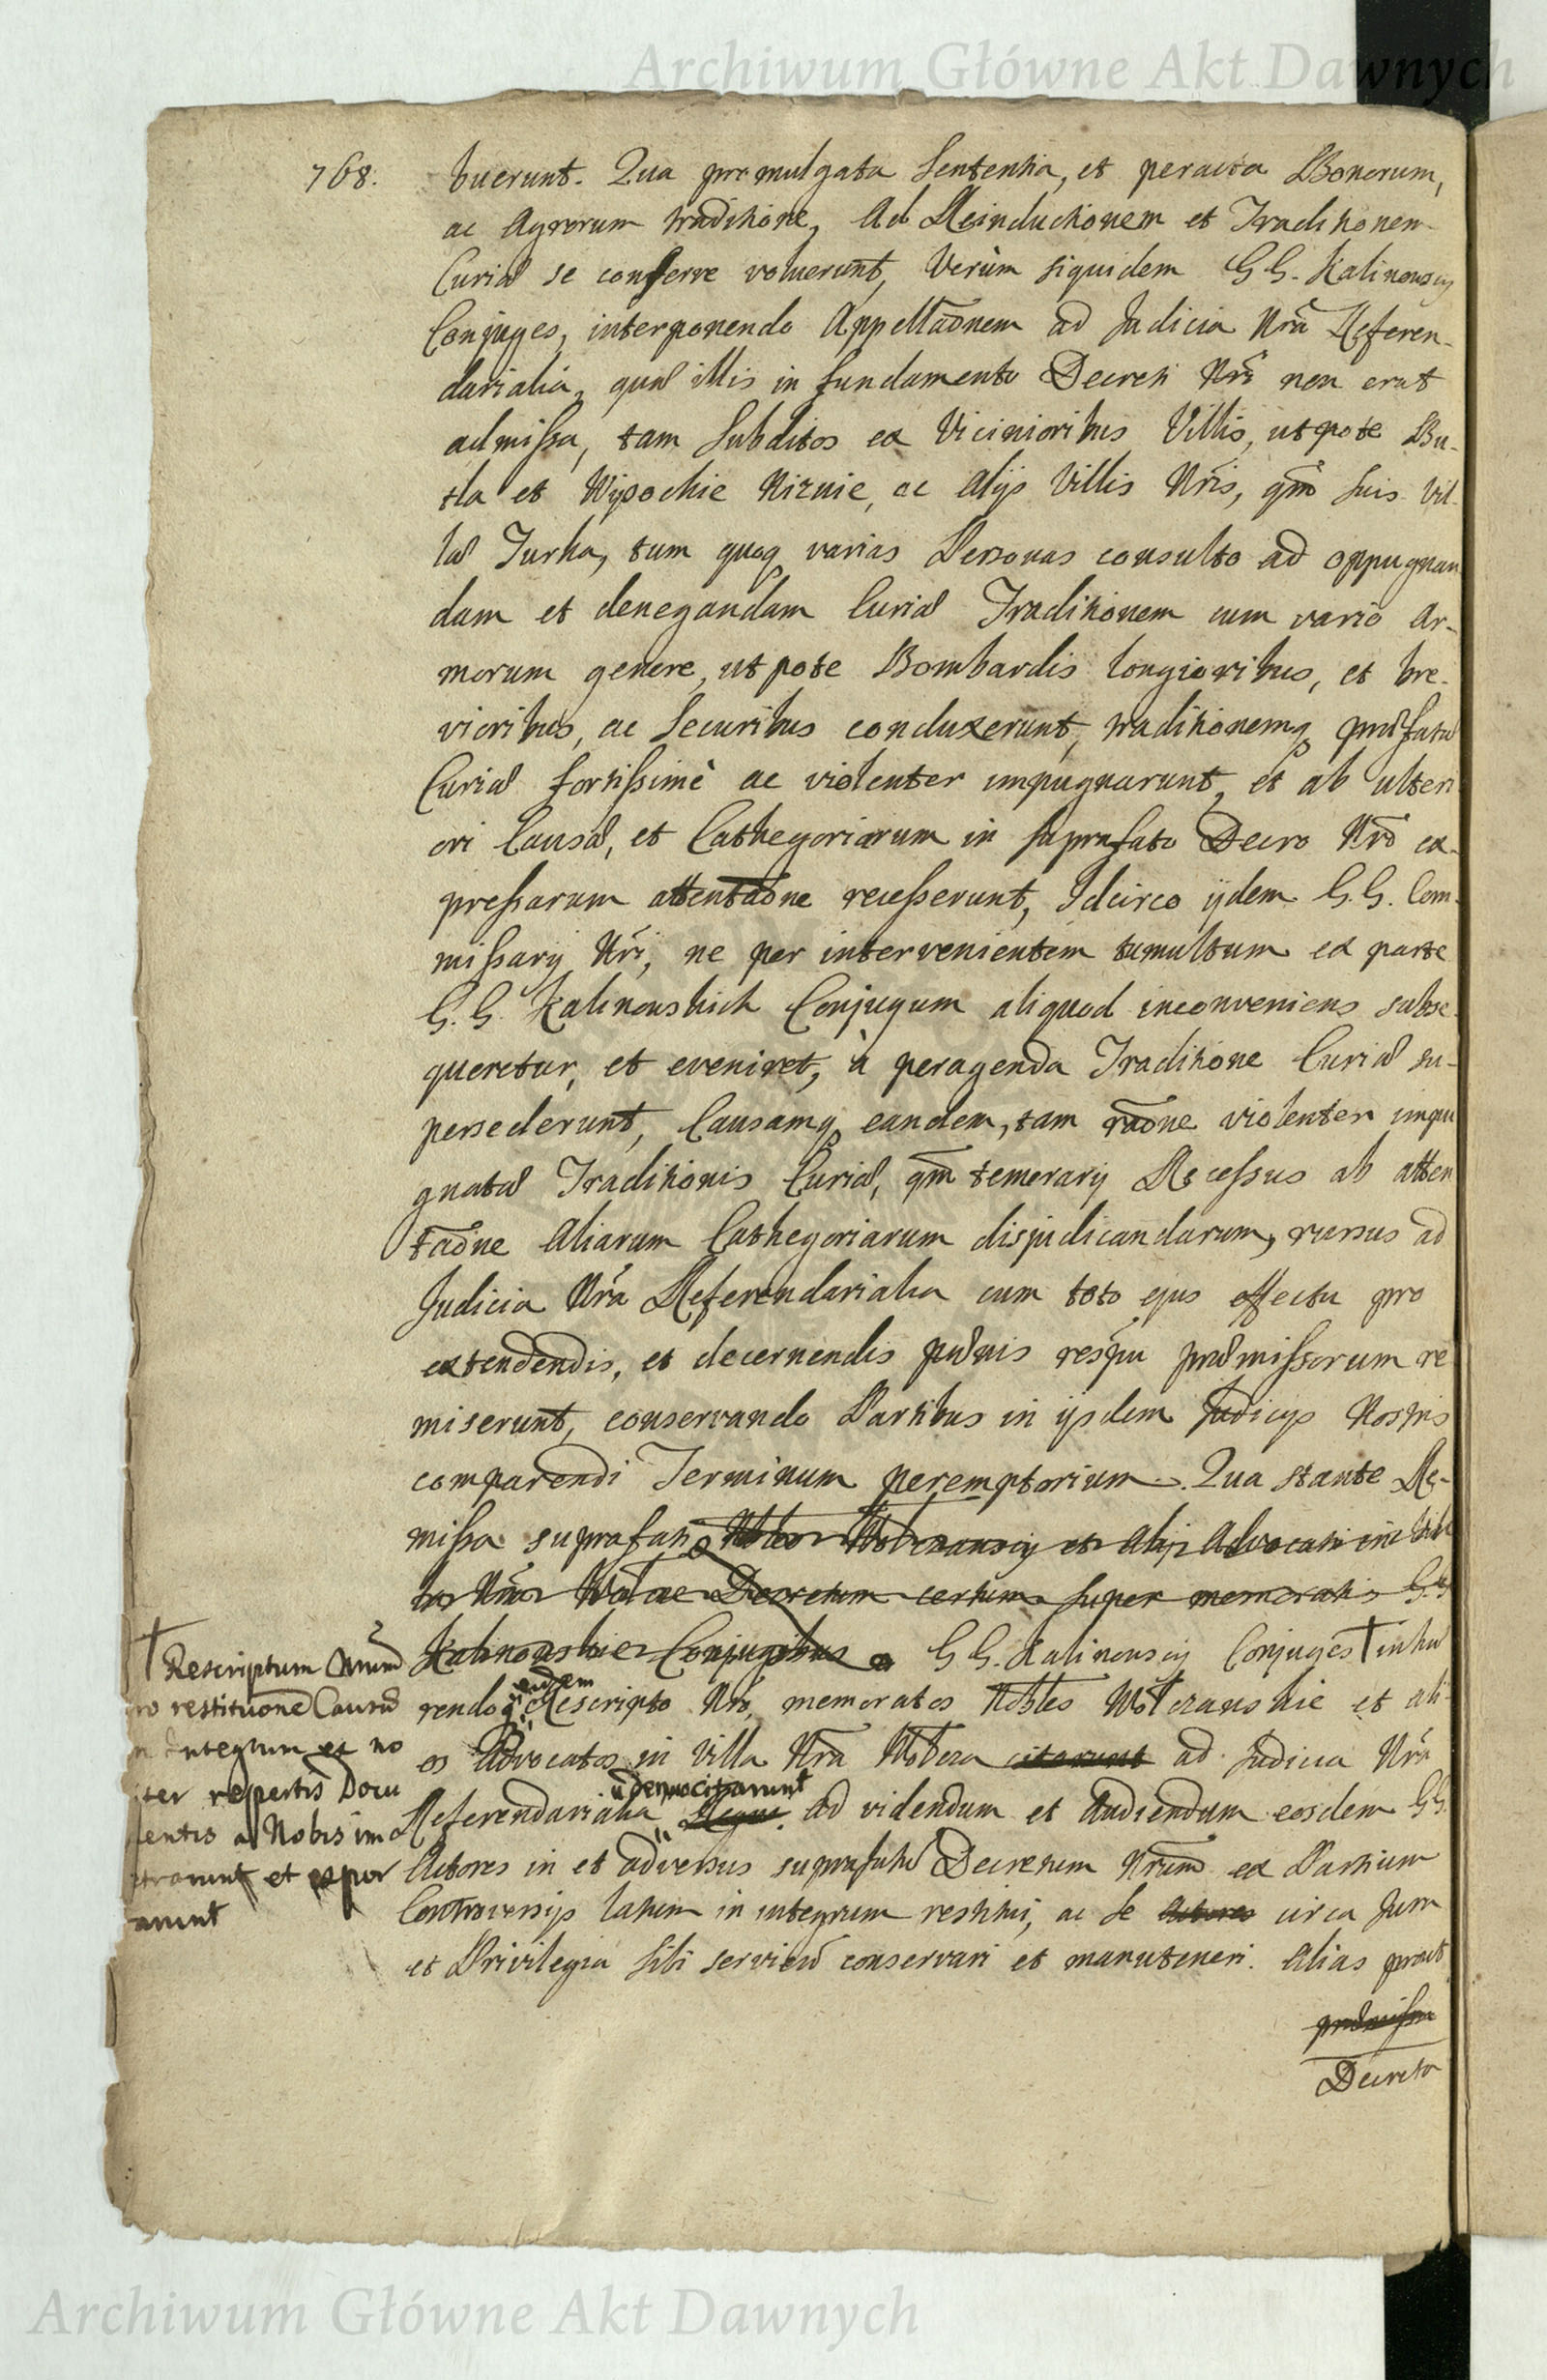 Archiwum Główne Akt Dawnych
768.
buerunt. Qua promulgata Sententia, et peracta Bonorum,
ac Agrorum traditione, Ad Reinductionem et Traditionem
Curiæ se conferre voluerunt, Verùm siquidem GG. Kalinouscy
Conjuges, interponendo Appellaõnem ad Judicia Nrã Referen-
darialia, quæ illis in fundamento Decreti Nri non erat
admissa, tam Subditos ex Vicinioribus Villis, utpote Bu-
tla et Wysochie Niznie, ac Alijs Villis Nris, qm̃ suis Vil-
læ Turka, tum quoq varias Personas consulto ad oppugnan
dam et denegandam Curiæ Traditionem cum vario ar-
morum genere, utpote Bombardis longioribus, et bre-
vioribus, ac Securibus conduxerunt, traditionemq præfatæ
Curiæ fortissimè ac violenter impugnarunt, et ab ulteri
ori Causæ, et Cathegoriarum in suprafato Decro Nrõ ex-
pressarum attentaõne recesserunt, Idcirco ijdem G.G. Com-
missarij Nri, ne per intervenientem tumultum ex parte
G.G. Kalinouskich Conjugum aliquod inconveniens subse-
queretur, et eveniret, à peragenda Traditione Curiæ su-
persederunt, Causamq eandem, tam raõne violenter impu
gnatæ Traditionis Curiæ, qm̃ temerarij Recessus ab atten
taõne Aliarum Cathegoriarum disjudicandarum, rursus ad
Judicia Nrã Referendarialia cum toto ejus effectu pro
extendendis, et decernendis pænis respu præmissorum re
miserunt, conservando Partibus in ijsdem Judicijs Nostris
comparendi Terminum peremptorium. Qua stante Re-
missa suprafati et Alij Advocati in
Decretum certum super memoratis G.G.
Kalinouskie Conjugibus GG. Kalinouscy Conjuges † inhæ
eidem
rendo Rescripto Nro, memoratos Nobles Wołczanskie et ali-
os Advocatos in Villa Nrã Wołcza citarunt ad Judicia Nrã
denuo citarunt
Referendarialia ad videndum et Audiendum eosdem GG.
Actores in et adversus suprafatū Decretum Nrũm ex Partium
Controversijs latum in integrum restitui, ac se Actores circa Jura
et Privilegia sibi servien conservari et manuteneri. Alias prout
præmissa
Decreto
† Rescriptum Nrum
pro restitutione Causæ
in integrum et no
iter repertis Docu
mentis a Nobis im
petrarunt et expor
tarunt
Archiwum Główne Akt Dawnych